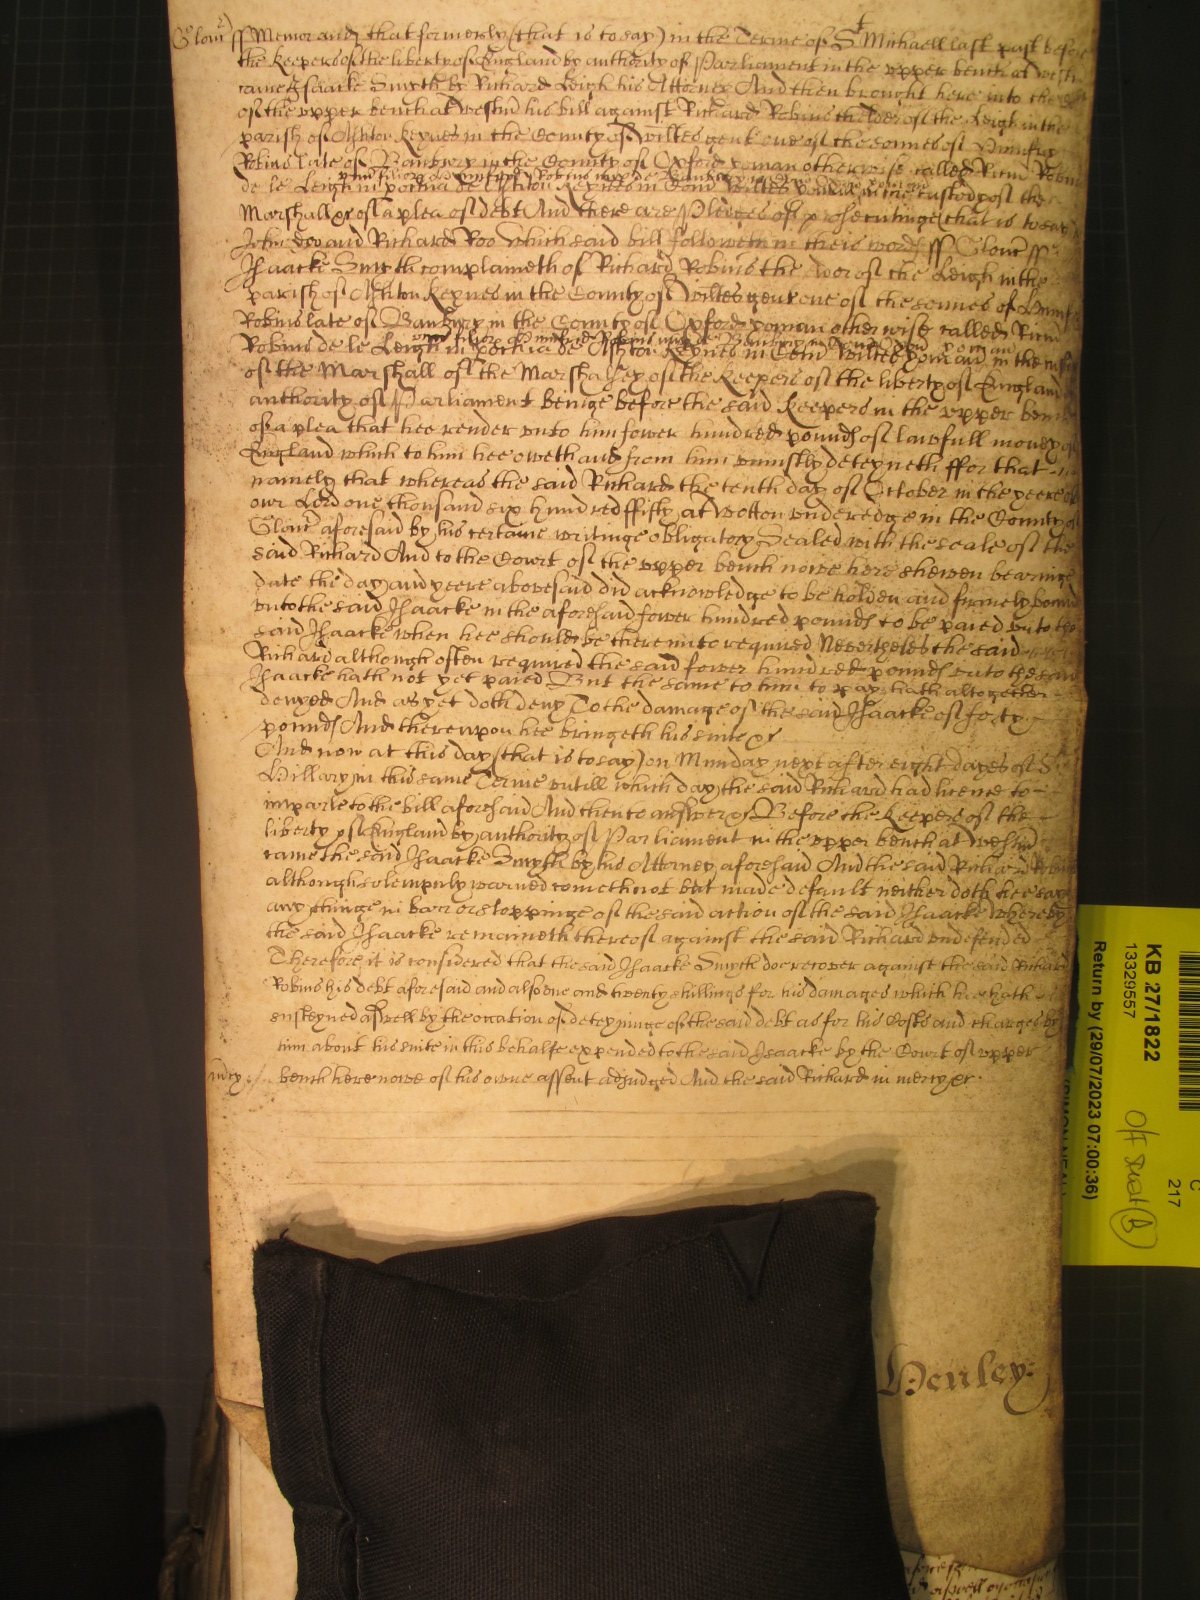 Glouc ss Memorand that formerly (that is to say) in the Terme of St Michaell last past before
the Keepers of the liberty of England by authority of Parliament in the upper bench at Westm
came Isaacke Smyth by Richard Leigh his Attorney And then brought here into the
of the upper bench at Westm his bill against Richard Robins the elder of the Leigh in the
parish of Ashton Keynes in the County of Wiltes gent one of the sonnes of
Robins late of Banbury in the County of Oxford yoman otherwise called Ricm Robins
de le Leigh in pochia de Ashton Keynes in Com Wiltes in the custody of the
Marshall &c of a plea of debt And there are Pledges of prosecutinge (that is to say)
John Doo and Richard Roo Which said bill followeth in theis words ss Glouc ss
Isaacke Smyth complaineth of Richard Robins the elder of the Leigh in the
parish of Ashton Keynes in the County of Wiltes gent one of the sonnes of
Robins late of Banbury in the County of Oxford yoman otherwise called Ricm
Robins de le Leigh in pochia de Ashton Keynes in Com Wiltes in the
of the Marshall of the Marshalsey of the Keepers of the liberty of England by
authority of Parliament beinge before the said Keepers in the upper bench
of a plea that hee render unto him fower hundred pounds of lawfull money of
England which to him hee oweth and from him uniustly deteyneth ffor that
namely that whereas the said Richard the tenth day of October in the yeere of
our Lord one thousand six hundred ffifty at Wotton underedge in the County of
Glouc aforesaid by his certaine writinge obligatory Sealed with the seale of the
said Richard And to the Court of the upper bench nowe here shewen bearinge
date the day and yeere abovesaid did acknowledge to be holden and firmely bound
unto the said Isaacke in the aforesaid fower hundred pounds to be paied unto the
said Isaacke when hee should be thereunto required Neverthelesse the said
Richard although often required the said fower hundred pounds unto the said
Isaacke hath not yet paied But the same to him to pay hath altogether
denyed And as yet doth deny To the damage of the said Isaacke of forty
pounds And thereupon hee bringeth his suite &c
And now at this day (that is to say) on Munday next after eight dayes of St
Hillary in this same Terme untill which day the said Richard had licence to
imparle to the bill aforesaid And then to answer &c Before the Keepers of the
liberty of England by authority of Parliament in the upper bench at Westm
came the said Isaacke Smyth by his Attorney aforesaid And the said Richard Robins
although solempnly warned cometh not but made default neither doth hee say
any thinge in barr or stoppinge of the said action of the said Isaacke Whereby
the said Isaacke remaineth thereof against the said Richard undefended
Therefore it is considered that the said Isaacke Smyth doe recover against the said Richard
Robins his debt aforesaid and alsoe one and twenty shillings for his damages which hee hath
susteyned aswell by the occation of deteyninge of the said debt as for his Costs and charges by
him about his suite in this behalfe expended to the said Isaacke by the Court of upper
mercy bench here nowe of his owne assent adjudged And the said Richard in mercy &c
Henley
KB 27/1822
13329557
Return by (29/07/2023 07:00:36)
C
217
O/F Small (B)